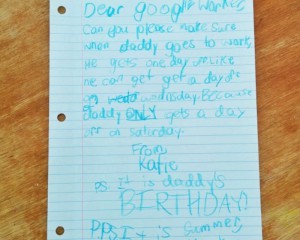 Dear google worker
Can you please make sure
when daddy goes to work
he gets one day off. Like
he can get a day off
on wednesday. Because
daddy ONLY gets a day
off on saturday.
From
Katie
P.S. It is daddy's
BIRTHDAY!
PPS It is summer